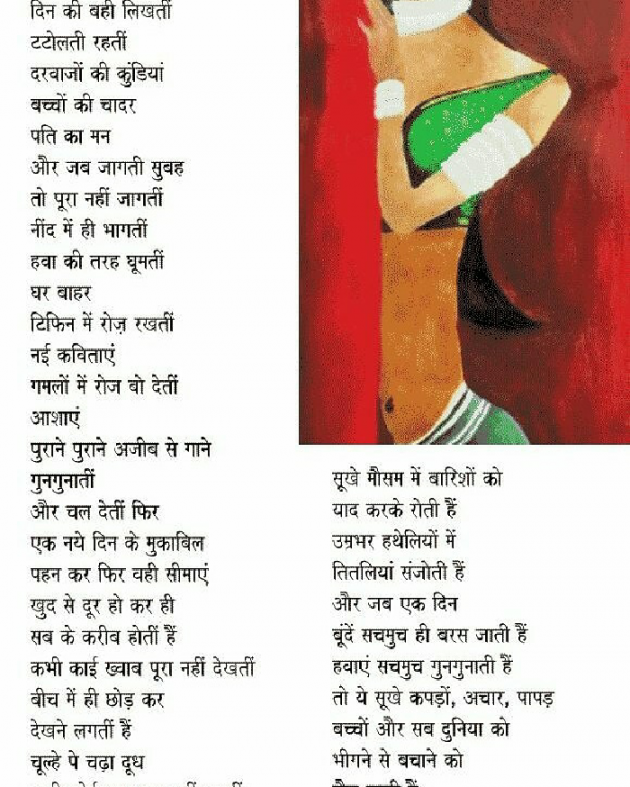 दिन की बही लिखतीं
टटोलती रहतीं
दरवाजों की कुंडियां
बच्चों की चादर
पति का मन
और जब जागती सुबह
तो पूरा नहीं जागतीं
नींद में ही भागतीं
हवा की तरह घूमतीं
घर बाहर
टिफिन में रोज़ रखतीं
नई कविताएं
गमलों में रोज बो देतीं
आशाएं
पुराने पुराने अजीब से गाने
गुनगुनातीं
और चल देतीं फिर
एक नये दिन के मुकाबिल
पहन कर फिर वही सीमाएं
खुद से दूर हो कर ही
सब के करीब होतीं हैं
कभी काई ख्वाब पूरा नहीं देखतीं
बीच में ही छोड़ कर
देखने लगतीं हैं
चूल्हे पे चढ़ा दूध
सूखे मौसम में बारिशों को
याद करके रोती हैं
उम्रभर हथेलियों में
तितलियां संजोती हैं
और जब एक दिन
बूंदें सचमुच ही बरस जाती हैं
हवाएं सचमुच गुनगुनाती हैं
तो ये सूखे कपड़ों, अचार, पापड़
बच्चों और सब दुनिया को
भीगने से बचाने को